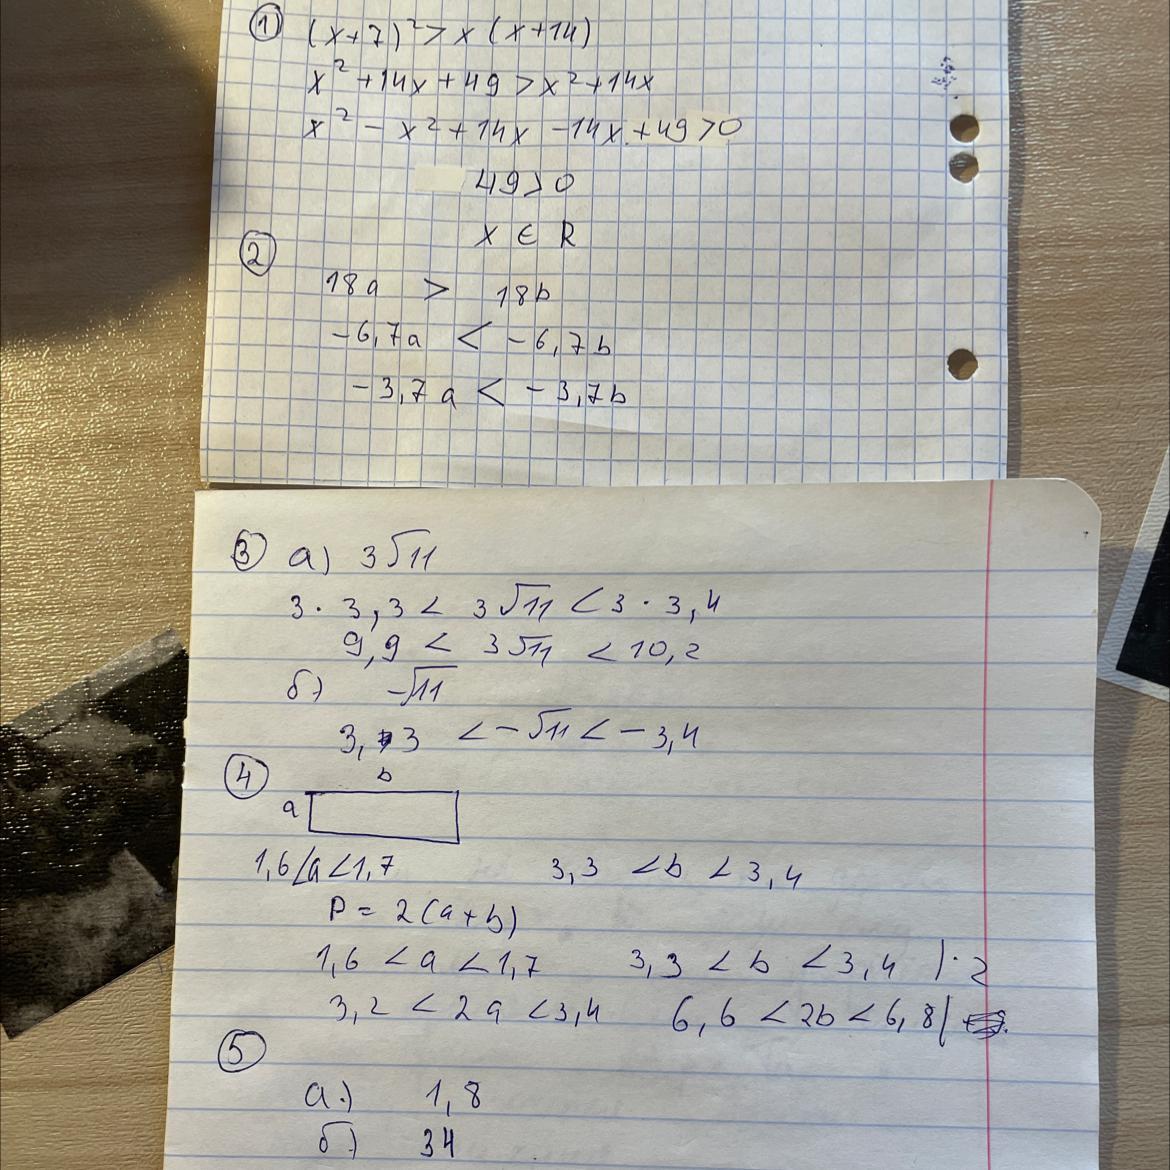 1
(x+7)² > x(x+14)
x² + 14x + 49 > x² + 14x
x² - x² + 14x - 14x + 49 > 0
49 > 0
x ∈ R
2
18a > 18b
-6,7a < -6,7b
-3,7a < -3,7b
3 а) 3√11
3 · 3,3 < 3√11 < 3 · 3,4
9,9 < 3√11 < 10,2
б) -√11
3,3 < -√11 < -3,4
4
b
a
1,6 < a < 1,7 3,3 < b < 3,4
P = 2(a+b)
1,6 < a < 1,7 3,3 < b < 3,4 | · 2
3,2 < 2a < 3,4 6,6 < 2b < 6,8 |
5
а.) 1,8
б) 34